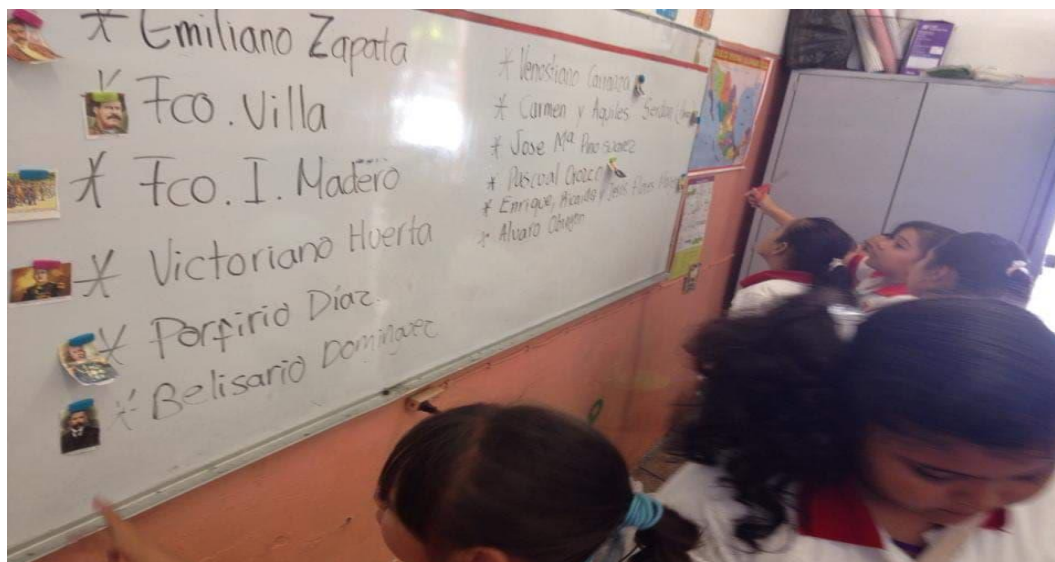 * Emiliano Zapata
* Fco. Villa
* Fco. I. Madero
* Victoriano Huerta
* Porfirio Díaz.
* Belisario Dominguez
* Venostiano Carranza
* Carmen y Aquiles Serdan
* Jose Mª Pino suarez
* Pascual Orozco
* Enrique, Ricardo y Jesus Flores
* Alvaro Obregón